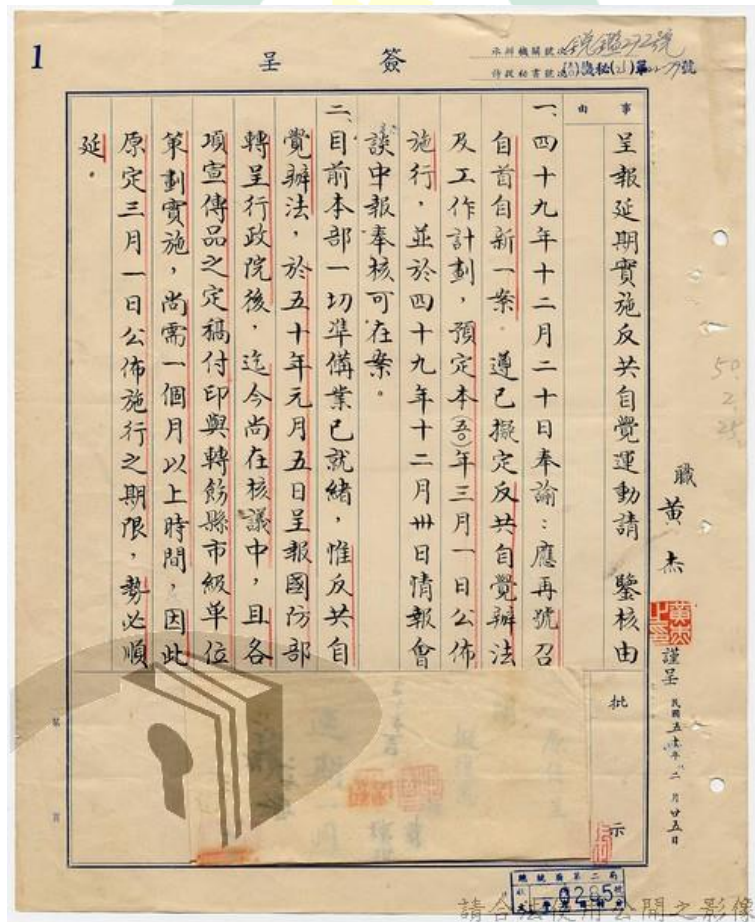 1
簽呈
承辦機關號次
侍從秘書號次
事由
呈報延期實施反共自覺運動請　鑒核由
一、四十九年十二月二十日奉諭：應再號召
自首自新一案，遵已擬定反共自覺辦法
及工作計劃，預定本(五〇)年三月一日公佈
施行，並於四十九年十二月卅日情報會
談中報奉核可在案。
二、目前本部一切準備業已就緒，惟反共自
覺辦法，於五十年元月五日呈報國防部
轉呈行政院後，迄今尚在核議中，且各
項宣傳品之定稿付印與轉飭縣市級單位
策劃實施，尚需一個月以上時間，因此
原定三月一日公佈施行之期限，勢必順
延。
職 黃杰
謹呈
民國五十年二月廿五日
50.
2.
25.
批示
0285
請合法使用公開之影像